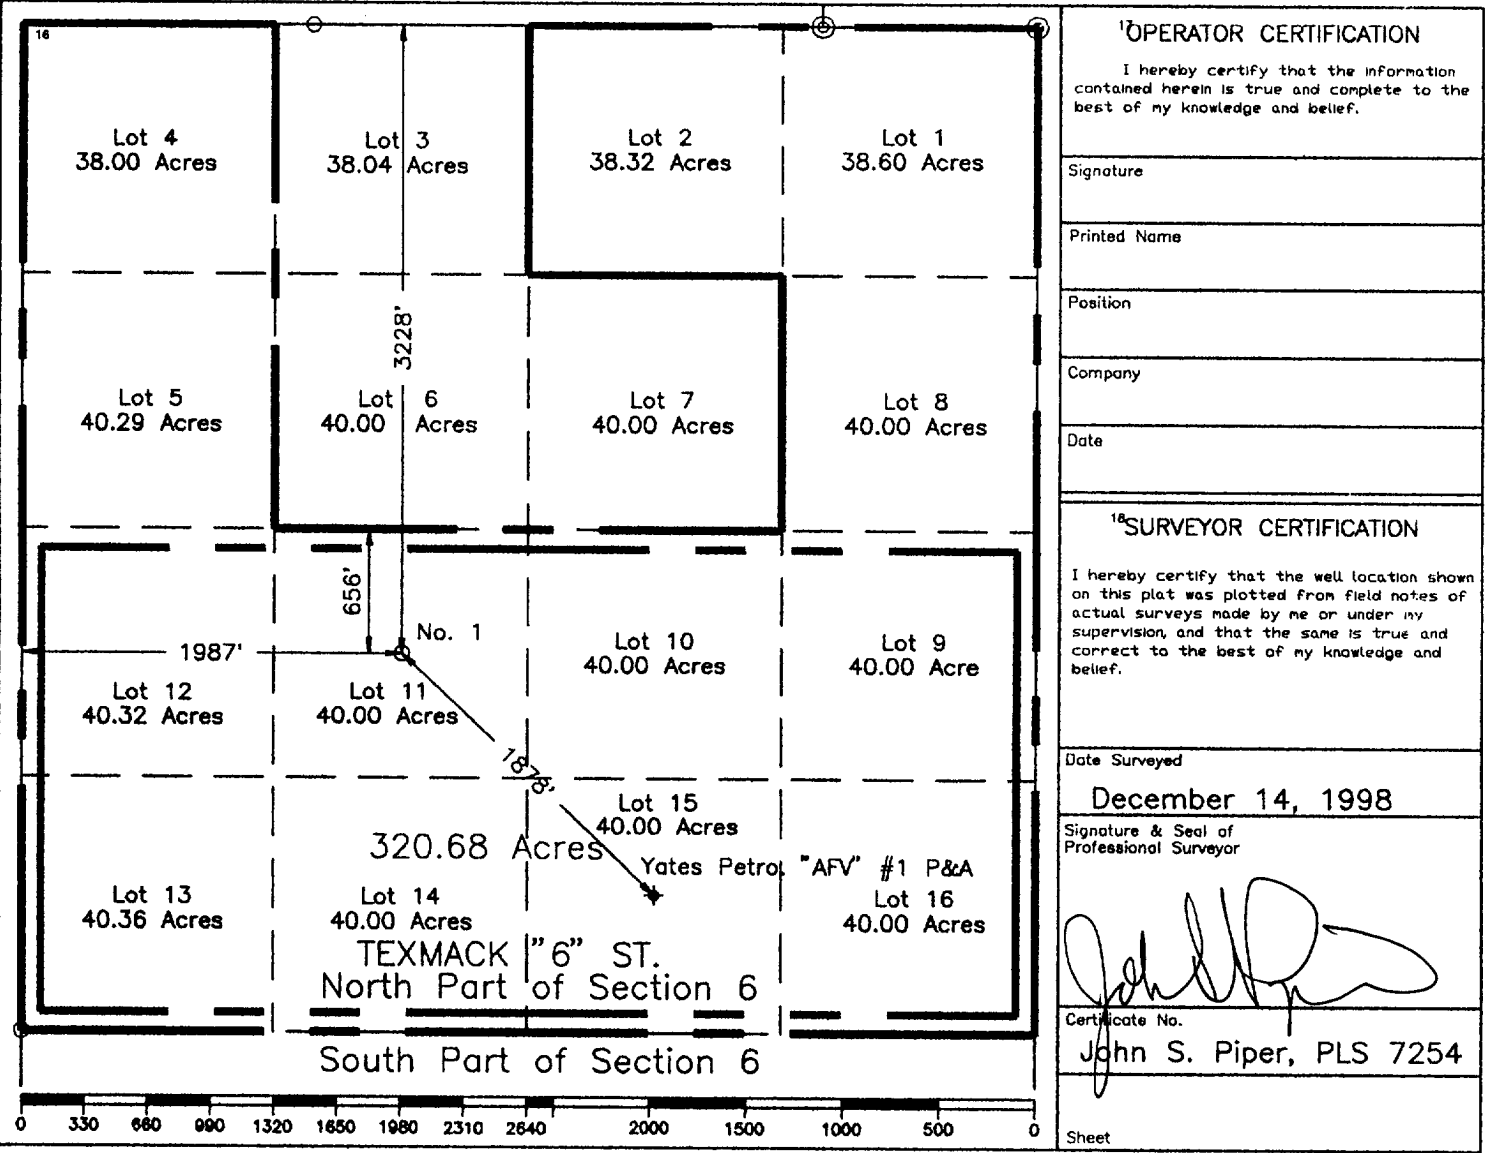 16
Lot 4
38.00 Acres
Lot 3
38.04 Acres
Lot 2
38.32 Acres
Lot 1
38.60 Acres
3228'
Lot 5
40.29 Acres
Lot 6
40.00 Acres
Lot 7
40.00 Acres
Lot 8
40.00 Acres
656'
No. 1
1987'
Lot 12
40.32 Acres
Lot 11
40.00 Acres
Lot 10
40.00 Acres
Lot 9
40.00 Acre
1878'
Lot 15
40.00 Acres
320.68 Acres
Yates Petrol "AFV" #1 P&A
Lot 13
40.36 Acres
Lot 14
40.00 Acres
Lot 16
40.00 Acres
TEXMACK "6" ST.
North Part of Section 6
South Part of Section 6
0 330 660 990 1320 1650 1980 2310 2640 2000 1500 1000 500 0
17 OPERATOR CERTIFICATION
I hereby certify that the information
contained herein is true and complete to the
best of my knowledge and belief.
Signature
Printed Name
Position
Company
Date
18 SURVEYOR CERTIFICATION
I hereby certify that the well location shown
on this plat was plotted from field notes of
actual surveys made by me or under my
supervision, and that the same is true and
correct to the best of my knowledge and
belief.
Date Surveyed
December 14, 1998
Signature & Seal of
Professional Surveyor
Certificate No.
John S. Piper, PLS 7254
Sheet